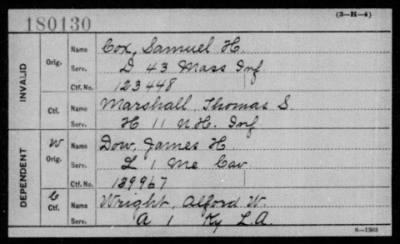 180130
(3-H-4)
INVALID
Orig.
Name Cox, Samuel H.
Serv. D 43 Mass Inf
Ctf. No. 123448
Ctf.
Name Marshall, Thomas S.
Serv. H 11 N.H. Inf
DEPENDENT
W
Orig.
Name Dow, James H
Serv. L 1 Me Cav
Ctf. No. 189967
C
Ctf.
Name Wright, Alford W.
Serv. A 1 Ky L.A.